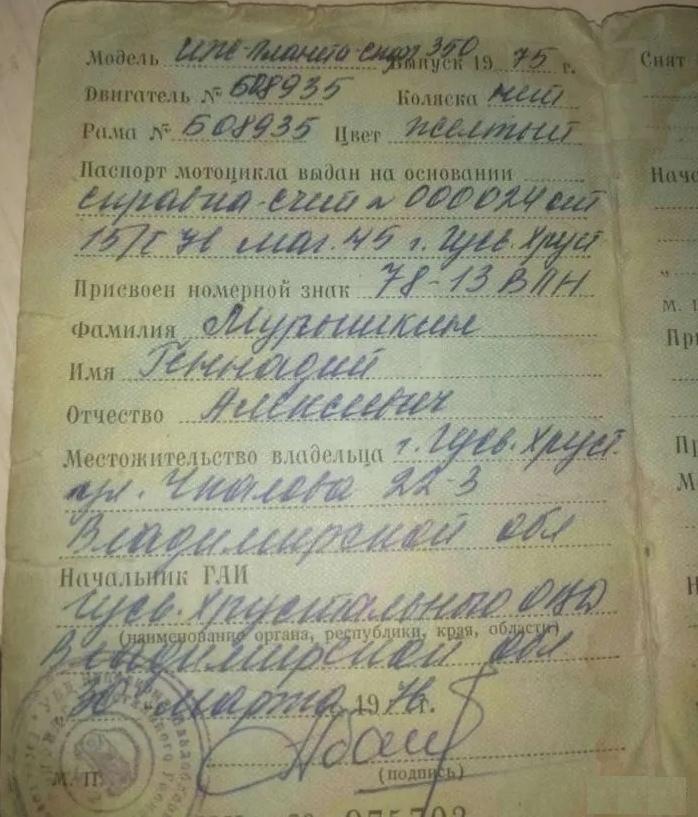 Модель ИЖ-Планета-спорт 350 Выпуск 19 75 г.
Двигатель № Б08935 Коляска нет
Рама № Б08935 Цвет желтый
Паспорт мотоцикла выдан на основании
справка-счет № 000024 от
15/I 76 маг. 45 г. Гусь. Хруст
Присвоен номерной знак 78-13 ВПН
Фамилия
Имя Геннадий
Отчество Алексеевич
Местожительство владельца г. Гусь. Хруст.
ул. Чкалова 22-3
Владимирской обл
Начальник ГАИ
Гусь. Хрустального ОВД
(наименование органа, республики, края, области)
Владимирской обл
30 марта 1976 г.
М. П.
(подпись)
Снят
Нача
М.
При